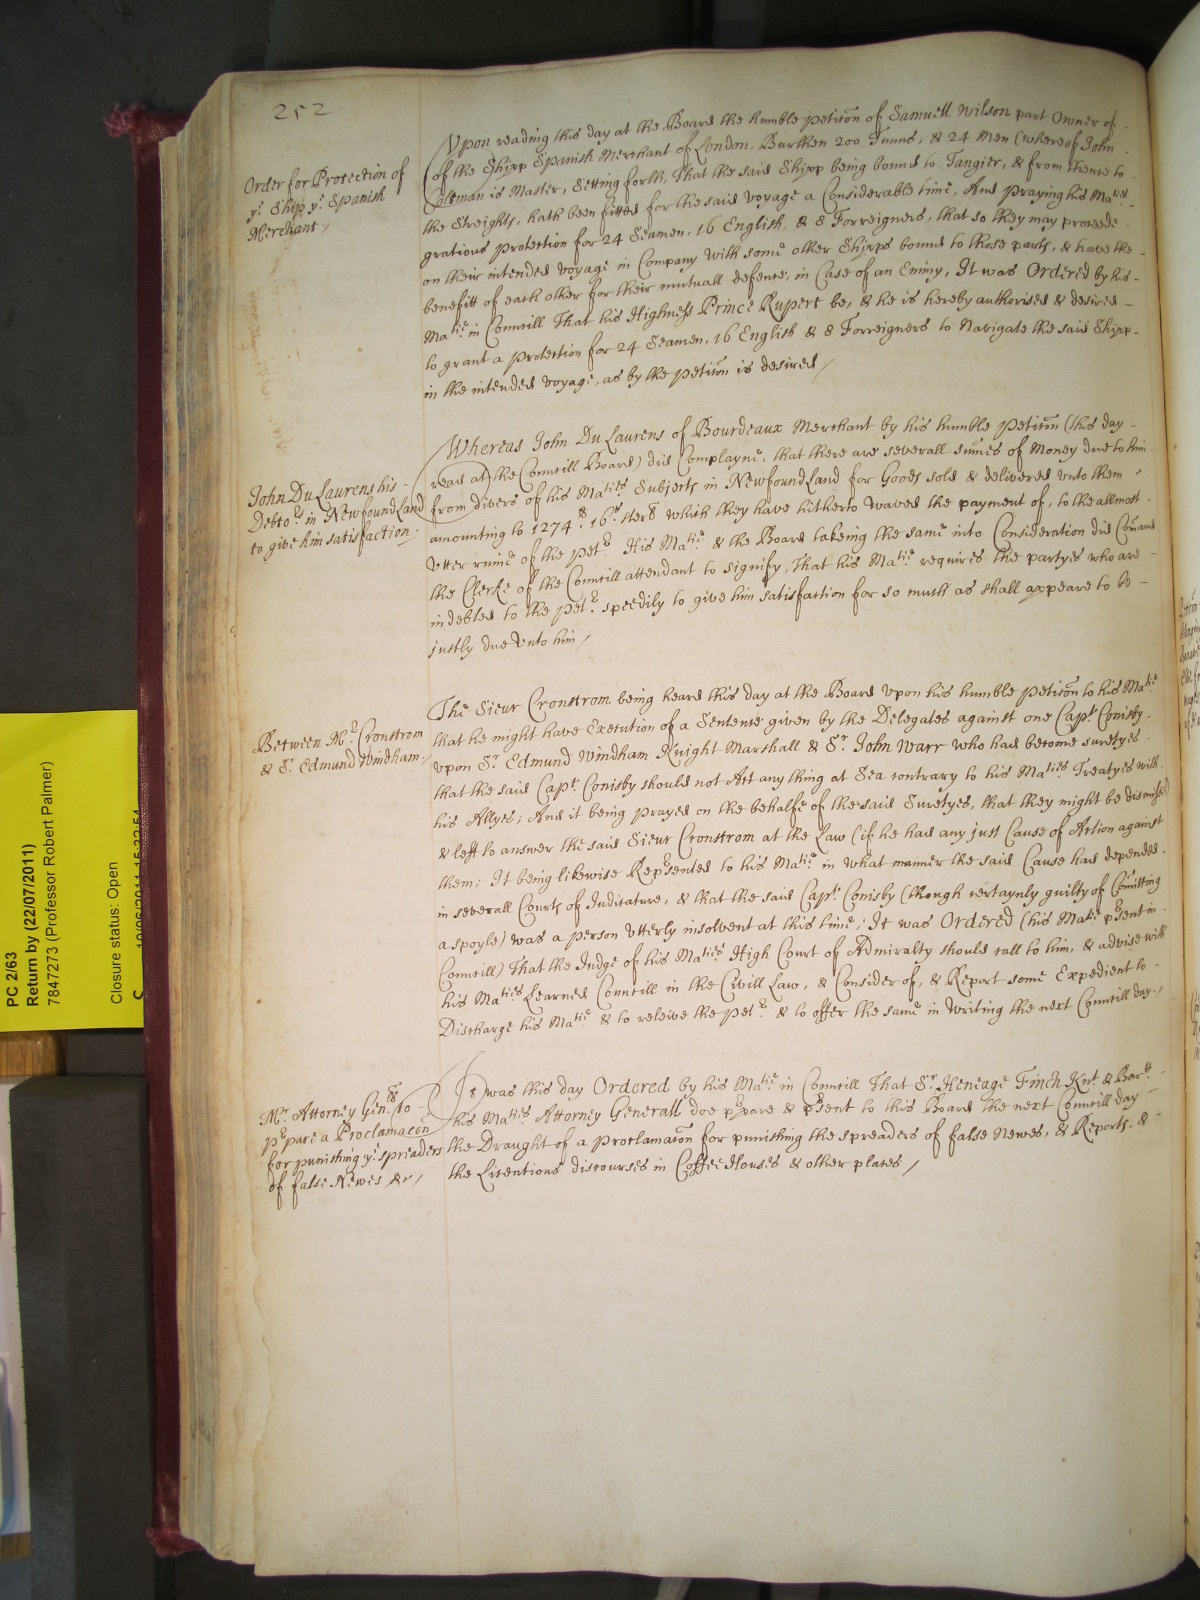 252
Order for Protection of
yᵉ Ship yᵉ Spanish
Merchant /
Upon reading this day at the Board the humble peticōn of Samuell Wilson part Owner of -
of the Shipp Spanish Merchant of London, Burthen 200 Tunns, & 24 Men (whereof John -
Coleman is Master, Setting forth, That the said Shipp being bound to Tangier, & from thence to -
the Streights, hath been fitted for the said voyage a Considerable time, And praying his Maᵗⁱᵉˢ -
gracious protection for 24 Seamen, 16 English, & 8 Forreigners, that so they may proceede -
on their intended voyage in Company with some other Shipps bound to those parts, & have the -
benefitt of each other for their mutuall defence, in Case of an Enimy, It was Ordered by his -
Maᵗⁱᵉ in Councill That his Highness Prince Rupert be, & he is hereby authorised & desired -
to grant a Protection for 24 Seamen, 16 English & 8 Forreigners to Navigate the said Shipp -
in the intended voyage, as by the peticōn is desired /
John Du Laurens his -
Debtoʳˢ in NewfoundLand
to give him satisfaction.
Whereas John Du Laurens of Bourdeaux Merchant by his humble Peticōn (this day -
read at the Councill Board) did Complayne, that there are severall sum̄es of Money due to him
from divers of his Maᵗⁱᵉˢ Subjects in NewfoundLand for Goods sold & delivered unto them
amounting to 1274ˡ 16ˢ sterˡ which they have hitherto waved the payment of, to the allmost -
utter ruine of the petʳ. His Maᵗⁱᵉ & the Board takeing the same into Consideration did Com̄and
the Clerke of the Councill attendant to signify, That his Maᵗⁱᵉ requires the partyes who are -
indebted to the petʳ speedily to give him satisfaction for so much as shall appeare to be -
justly due unto him /
Between Mʳ Cronstrom
& Sʳ Edmund Windham /
The Sieur Cronstrom being heard this day at the Board upon his humble peticōn to his Maᵗⁱᵉ
that he might have Execution of a Sentence given by the Delegates against one Capᵗ Conisby -
upon Sʳ Edmund Windham Knight Marshall & Sʳ John Warr who had become suretyes -
that the said Capᵗ Conisby should not Act any thing at Sea contrary to his Maᵗⁱᵉˢ Treatyes with -
his Allyes; And it being prayed on the behalfe of the said Suretyes, that they might be dismissed
& left to answer the said Sieur Cronstrom at the Law (if he had any just Cause of Action against
them; It being likewise Rep̄sented to his Maᵗⁱᵉ in what manner the said Cause had depended -
in severall Courts of Judicature, & that the said Capᵗ Conisby (though certaynly guilty of Com̄itting
a spoyle) was a person utterly insolvent at this time; It was Ordered (his Maᵗⁱᵉ p̄sent in -
Councill) That the Judge of his Maᵗⁱᵉˢ High Court of Admiralty should call to him, & advise with
his Maᵗⁱᵉˢ Learned Councill in the Civill Law, & Consider of, & Report some Expedient to -
Discharge his Maᵗⁱᵉ & to releive the petʳ & to offer the same in Writing the next Councill day. /
Mʳ Attorney Genˡˡ to -
p̄pare a Proclamacōn
for punishing yᵉ spreaders
of false Newes &c /
It was this day Ordered by his Maᵗⁱᵉ in Councill That Sʳ Heneage Finch Knᵗ & Barᵗᵗ -
his Maᵗⁱᵉˢ Attorney Generall doe p̄pare & p̄sent to this Board the next Councill day -
the Draught of a Proclamacōn for punishing the spreaders of false Newes, & Reports, &
the Licentious discourses in Coffee Houses & other places /
PC 2/63
Return by (22/07/2011)
7847273 (Professor Robert Palmer)
Closure status: Open